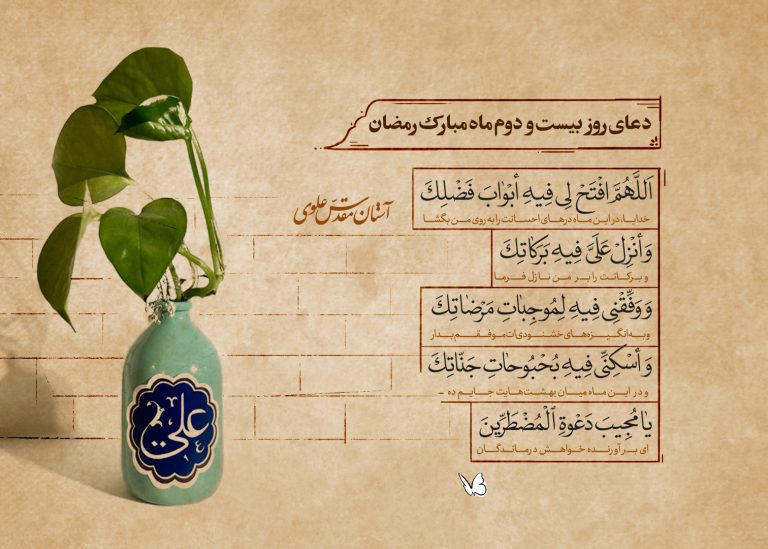 دعای روز بیست و دوم ماه مبارک رمضان
اَللّٰهُمَّ افْتَحْ لی فیهِ أبْوابَ فَضْلِكَ
خدایا، در این ماه درهای احسانت را به روی من بگشا
وَ أنْزِلْ عَلَیَّ فیهِ بَرَكاتِكَ
و برکاتت را بر من نازل فرما
وَ وَفِّقْنی فیهِ لِمُوجِباتِ مَرْضاتِكَ
و به انگیزه‌های خشنودی‌ات موفقم بدار
وَ أسْكِنّی فیهِ بُحْبُوحاتِ جَنّاتِكَ
و در این ماه میان بهشت‌هایت جایم ده -
یا مُجیبَ دَعْوَةِ الْمُضْطَرّینَ
ای برآورنده خواهش درماندگان
آستان مقدس علوی
علی